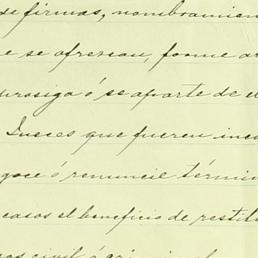 de firmas, nombramien
e se ofrezcan, forme ar
prosiga ó se aparte de e
Jueces que fueren inc
goce ó renuncie términ
casos el beneficio de restitu